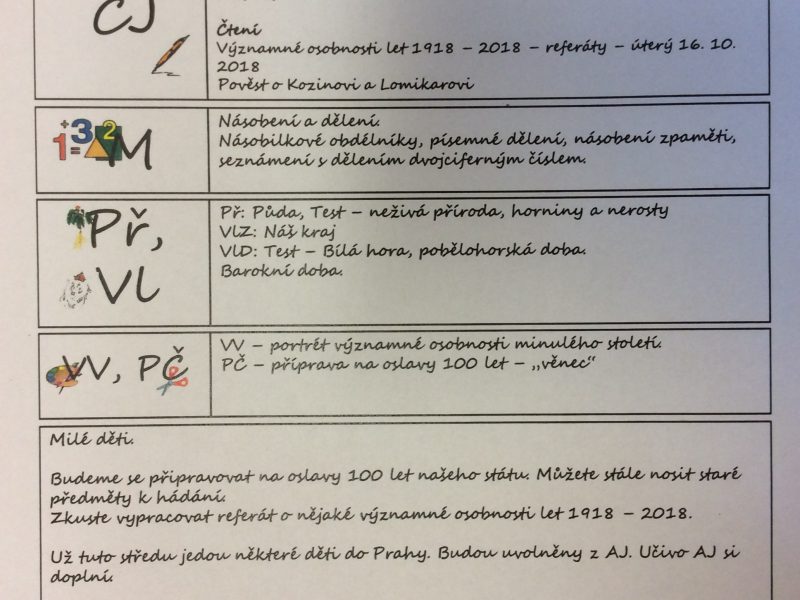 ČJ
Čtení
Významné osobnosti let 1918 – 2018 – referáty – úterý 16. 10.
2018
Pověst o Kozinovi a Lomikarovi
+3 2
1=
M
Násobení a dělení.
Násobilkové obdélníky, písemné dělení, násobení zpaměti,
seznámení s dělením dvojciferným číslem.
Př,
Vl
Př: Půda, Test – neživá příroda, horniny a nerosty
VlZ: Náš kraj
VlD: Test – Bílá hora, pobělohorská doba.
Barokní doba.
VV, PČ
VV – portrét významné osobnosti minulého století.
PČ – příprava na oslavy 100 let – „věnec“
Milé děti.
Budeme se připravovat na oslavy 100 let našeho státu. Můžete stále nosit staré
předměty k hádání.
Zkuste vypracovat referát o nějaké významné osobnosti let 1918 – 2018.
Už tuto středu jedou některé děti do Prahy. Budou uvolněny z AJ. Učivo AJ si
doplní.